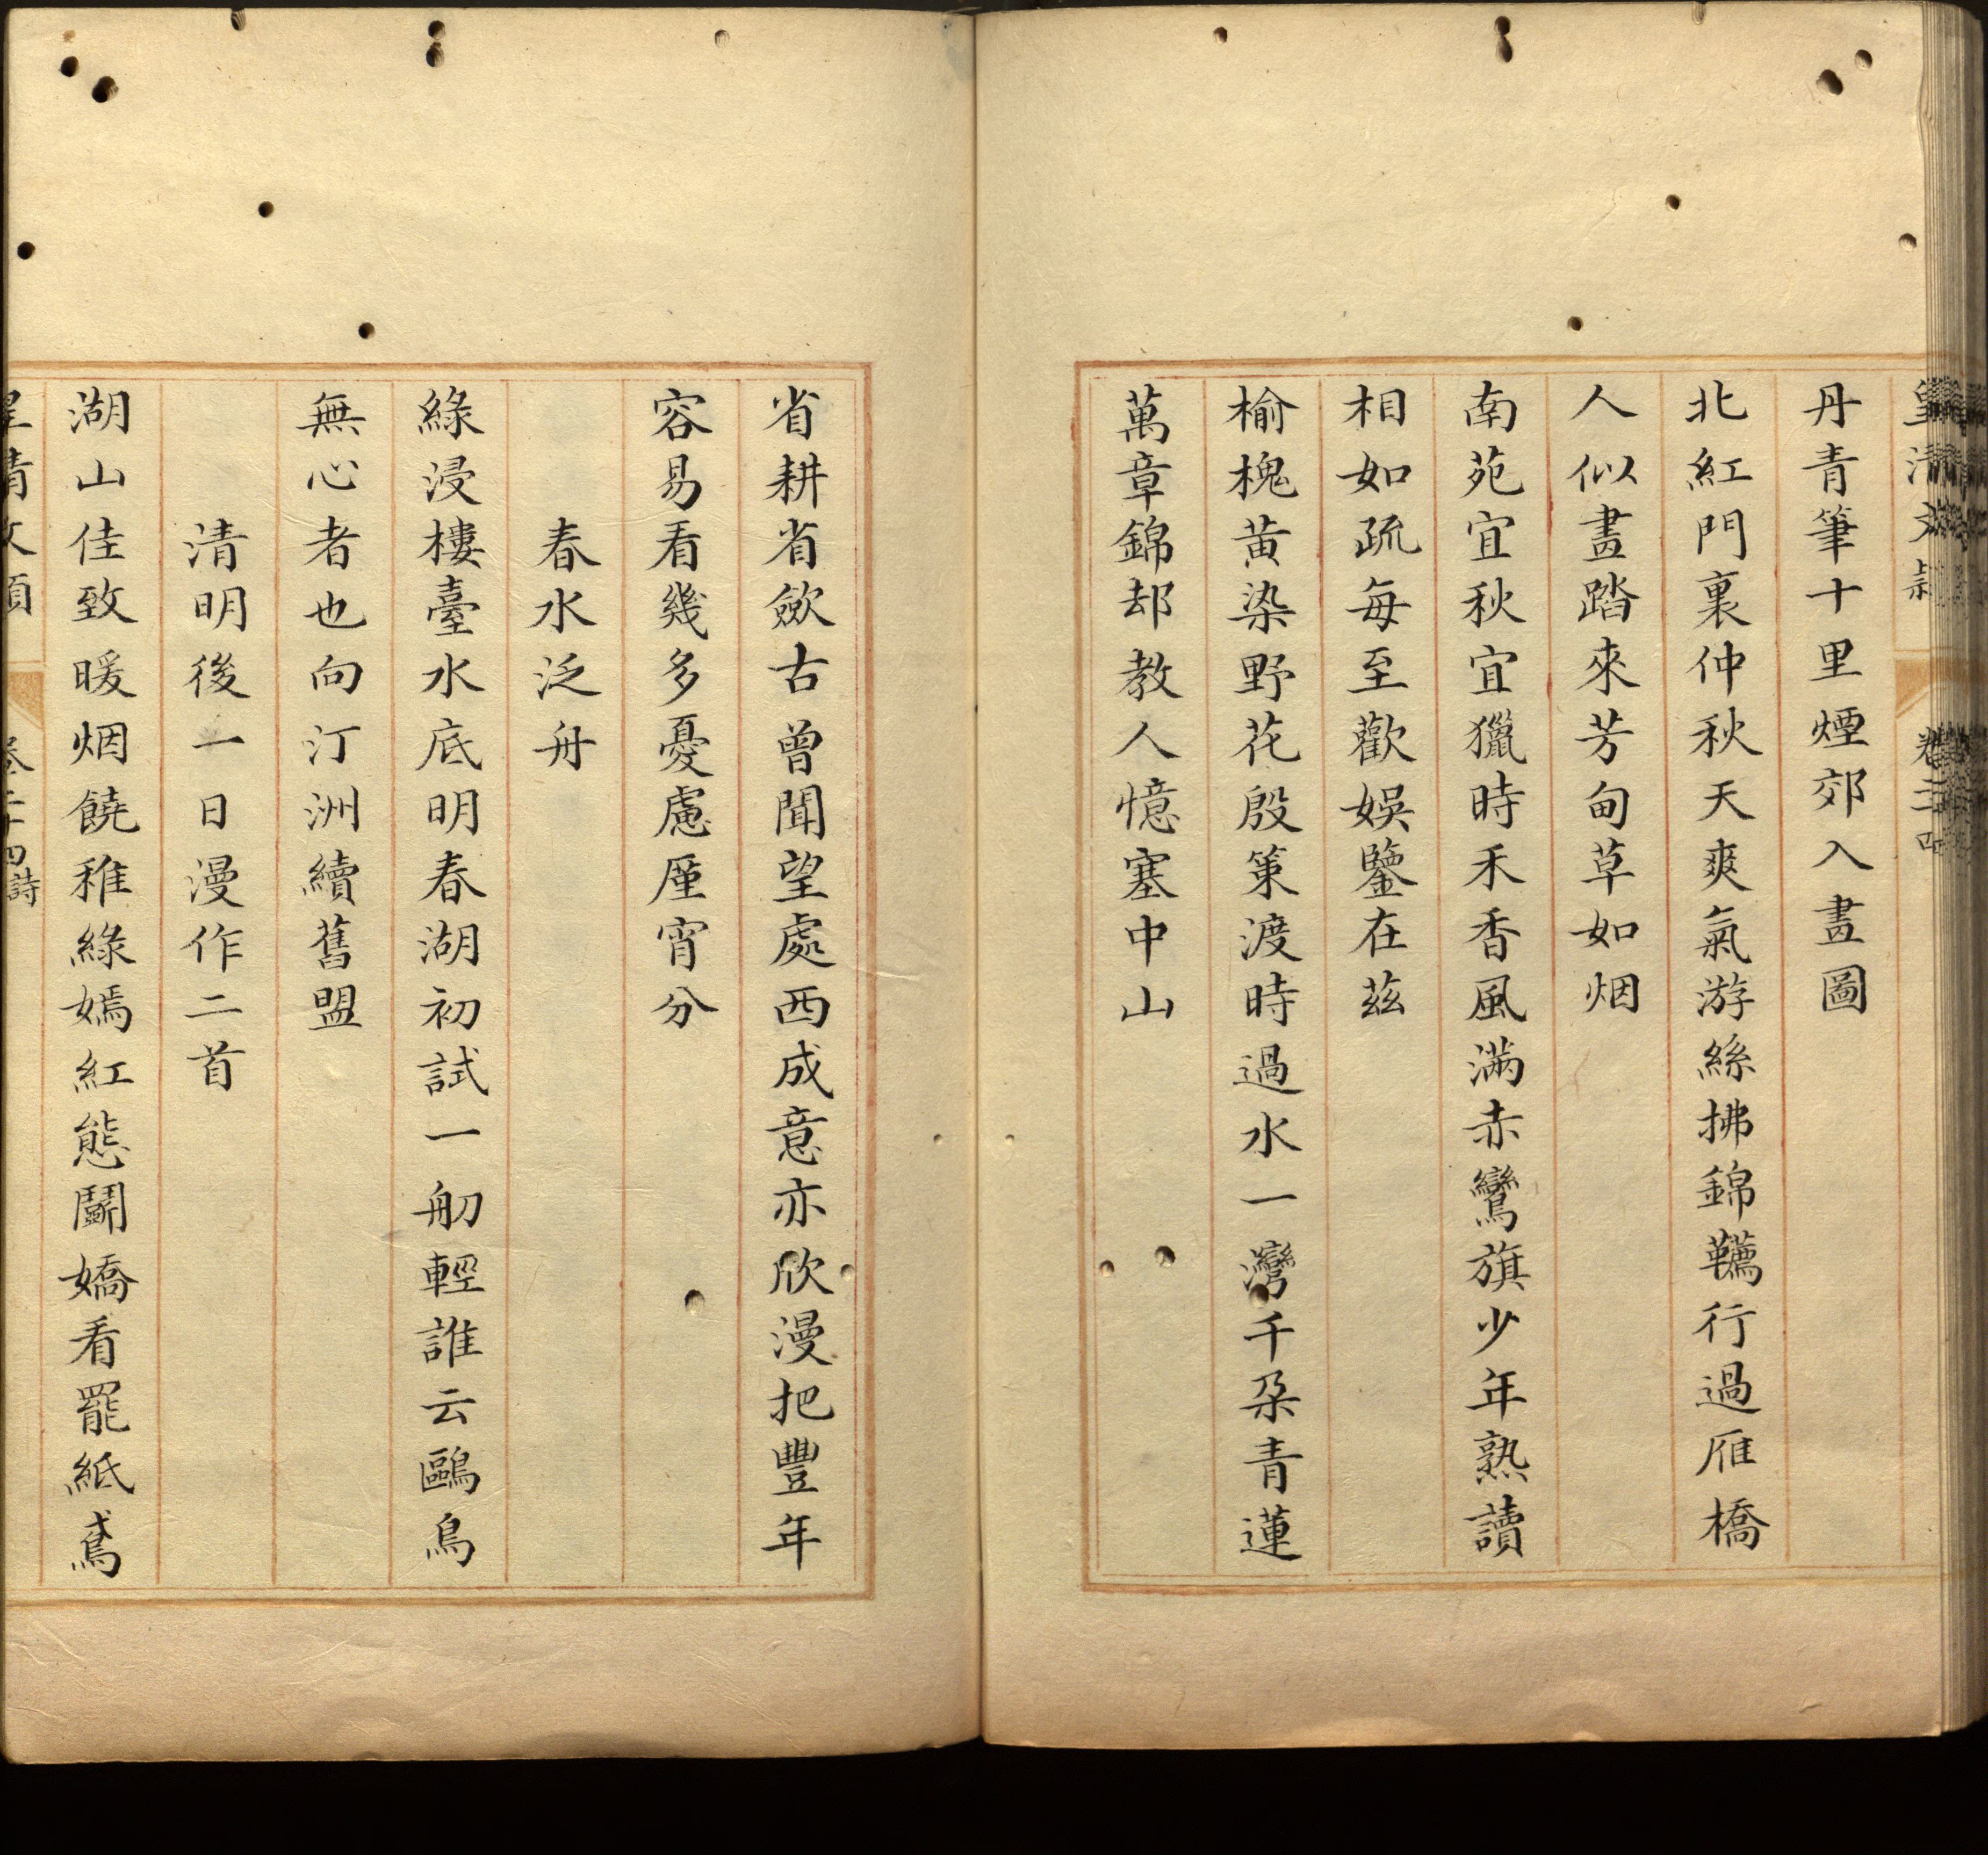 皇清文穎 卷二十四
丹青筆十里煙郊入畫圖
北紅門裏仲秋天爽氣游絲拂錦韉行過雁橋
人似畫踏來芳甸草如烟
南苑宜秋宜獵時禾香風滿赤鸞旗少年熟讀
相如疏每至歡娛鑒在茲
榆槐黃染野花殷策渡時過水一灣千朶青蓮
萬章錦却教人憶塞中山
省耕省斂古曾聞望處西成意亦欣漫把豐年
容易看幾多憂慮廑宵分
春水泛舟
綠浸樓臺水底明春湖初試一舠輕誰云鷗鳥
無心者也向汀洲續舊盟
清明後一日漫作二首
湖山佳致暖烟饒稚綠嫣紅態鬪嬌看罷紙鳶
皇清文穎 卷二十四詩